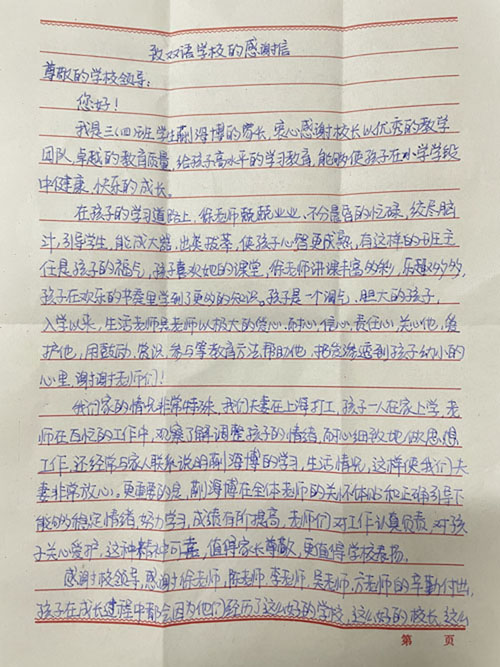 致双语学校的感谢信
尊敬的学校领导:
您好!
我是三(四)班学生蒯海博的家长,衷心感谢校长以优秀的教学
团队,卓越的教育质量,给孩子高水平的学习教育,能够使孩子在小学学段
中健康、快乐的成长。
在孩子的学习道路上,徐老师兢兢业业、不分昼夜的忙碌,绞尽脑
汁,引导学生,能成大器,出类拔萃,使孩子心智更成熟,有这样的班主
任是孩子的福气,孩子喜欢她的课堂,徐老师讲课丰富多彩,乐趣多多,
孩子在欢乐的书屋里学到了更多的知识。孩子是一个淘气,胆大的孩子,
入学以来,生活老师吴老师以极大的爱心,耐心,信心,责任心,关心他,爱
护他,用鼓励、赏识、参与等教育方法,帮助他,把爱渗透到孩子幼小的
心里,谢谢老师们!
我们家的情况非常特殊,我们夫妻在上海打工,孩子一人在家上学,老
师在百忙的工作中,观察了解调整孩子的情绪,耐心细致地做思想
工作,还经常与家人联系说明蒯海博的学习,生活情况,这样使我们夫
妻非常放心。更重要的是,蒯海博在全体老师的关怀体贴和正确引导下
能够稳定情绪,努力学习,成绩有所提高,老师们对工作认真负责,对孩
子关心爱护,这种精神可嘉,值得家长尊敬,更值得学校表扬。
感谢校领导,感谢徐老师,陈老师,李老师,吴老师,方老师的辛勤付出,
孩子在成长过程中都会因为他们经历了这么好的学校,这么好的校长,这么
第 页